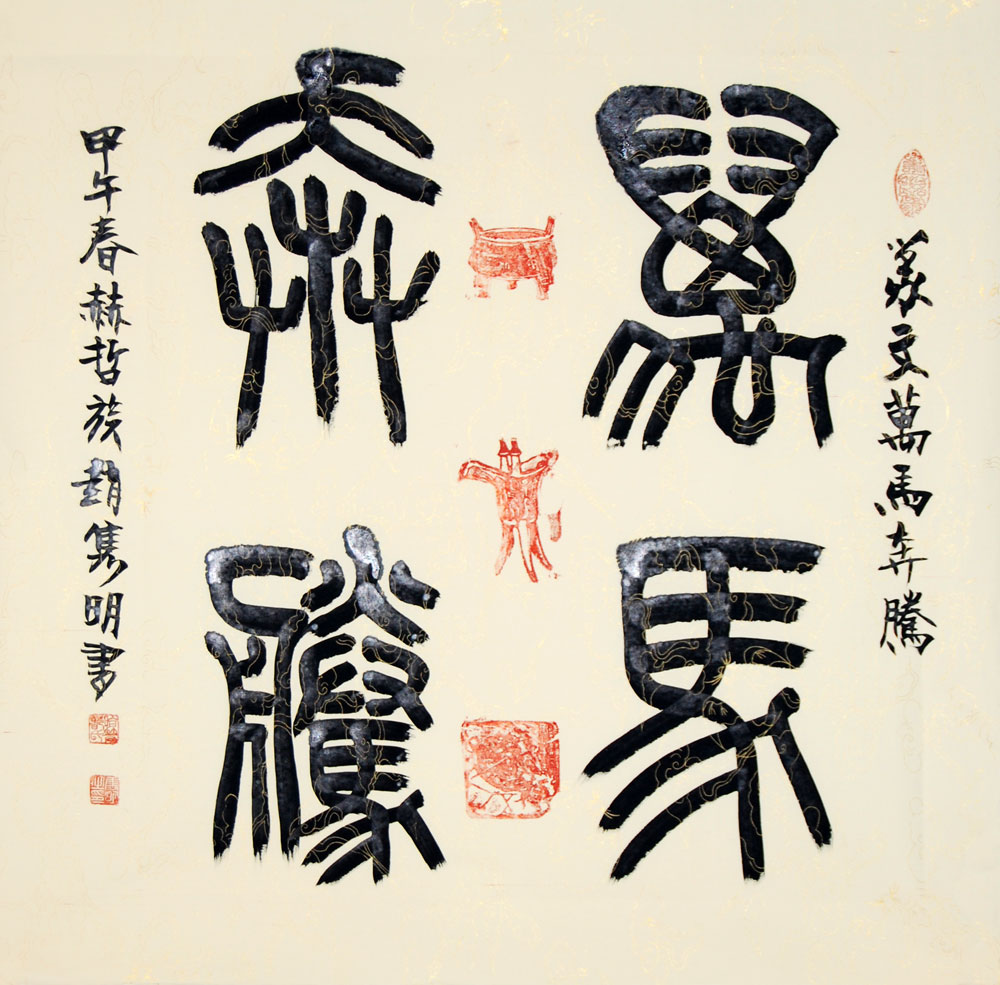 篆文萬馬奔騰
萬馬
奔騰
甲午春赫哲族趙雋明書